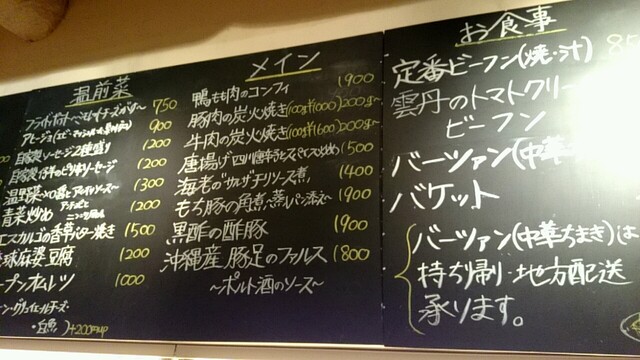 温前菜
フライドポテト 〜モッツァレラチーズがけ〜 750
900
自家製ソーセージ2種盛り 1200
自家製 ピリ辛ソーセージ 1200
温野菜 1300
青菜炒め 1200
エスカルゴの香草バター焼き 1500
麻婆豆腐 1200
オープンオムレツ 1000
白魚 )+200円up
メイン
鴨もも肉のコンフィ 1900
豚肉の炭火焼き(100g¥1000)200g〜
牛肉の炭火焼き(100g¥1600)200g〜
唐揚げ 四川唐辛子とスパイス炒め 1500
海老のサルサチリソース煮 1400
もち豚の角煮〜蒸しパン添え〜 1900
黒酢の酢豚 1900
沖縄産 豚足のファルス 1800
〜ポルト酒のソース〜
お食事
定番ビーフン(焼・汁)
雲丹のトマトクリーム
ビーフン
バーツァン(中華
バケット
バーツァン(中華ちまき)は
持ち帰り・地方配送
承ります。